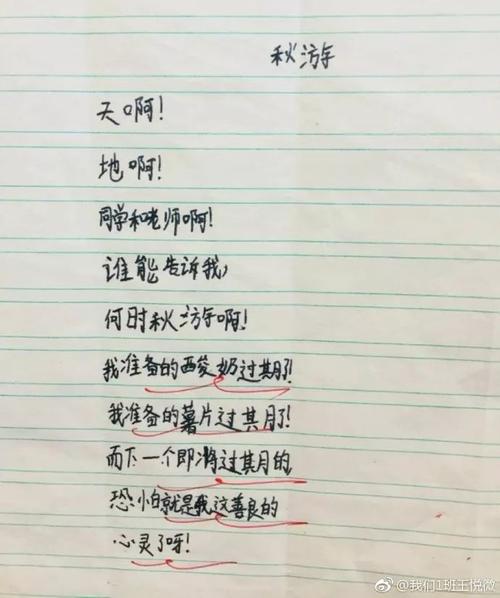 秋游
天啊！
地啊！
同学和老师啊！
谁能告诉我，
何时秋游啊！
我准备的酸奶过期了！
我准备的薯片过期了！
而下一个即将过期的，
恐怕就是我这善良的
心灵了呀！
@我们1班王悦微